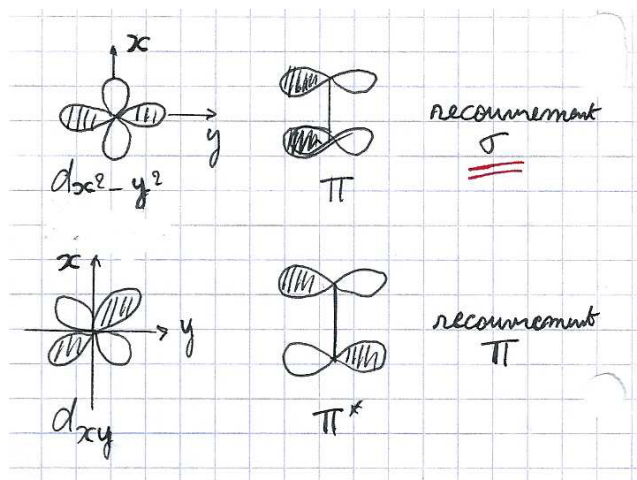 x
y
dx² - y²
π
recouvrement
σ
x
y
dxy
π*
recouvrement
π